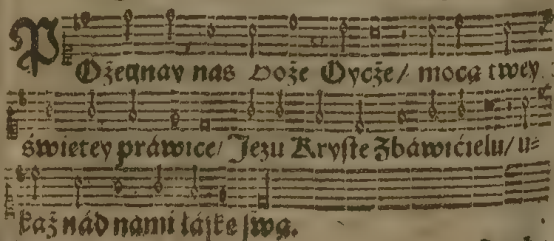 POżegnay nas Boże Oycże/ mocą twey
świętey práwice/ Jezu Kryste Zbáwićielu/ u=
każ nád námi łáskę swą.